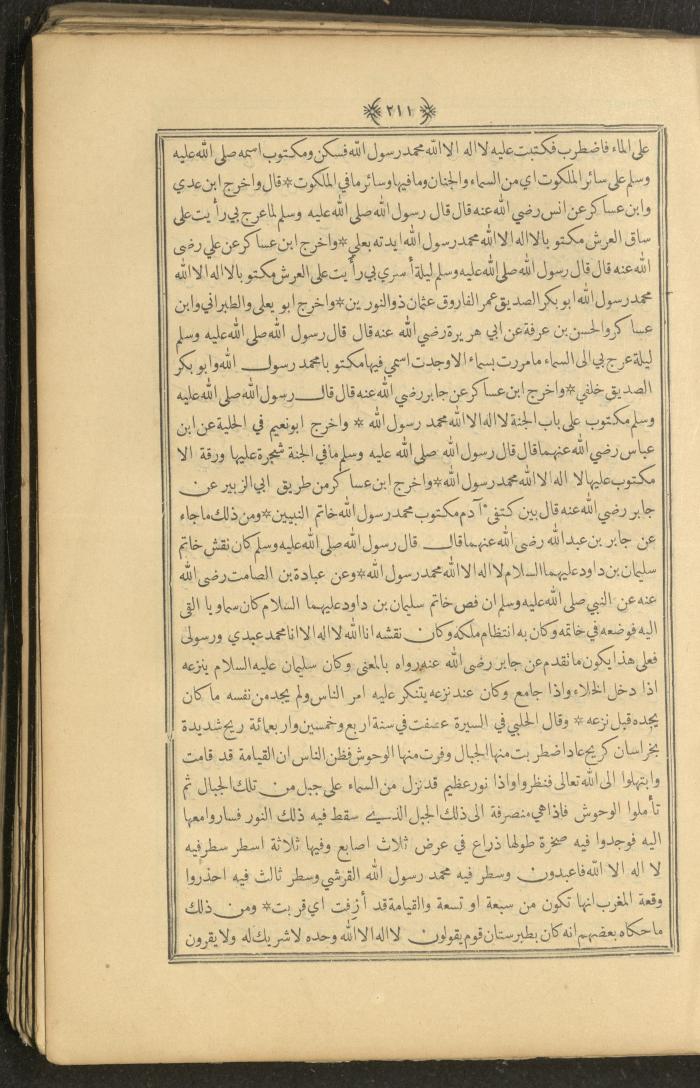 ٢١١
على الماء فاضطرب فكتبت عليه لا اله الا الله محمد رسول الله فسكن ومكتوب اسمه صلى الله عليه
وسلم على سائر الملكوت اي من السماء والجنان وما فيها وسائر ما في الملكوت * قال واخرج ابن عدي
وابن عساكر عن انس رضي الله عنه قال قال رسول الله صلى الله عليه وسلم لما عرج بي رأيت على
ساق العرش مكتوبا لا اله الا الله محمد رسول الله ايدته بعلي * واخرج ابن عساكر عن علي رضى
الله عنه قال قال رسول الله صلى الله عليه وسلم ليلة أسري بي رأيت على العرش مكتوبا لا اله الا الله
محمد رسول الله ابو بكر الصديق عمر الفاروق عثمان ذو النورين * واخرج ابو يعلى والطبراني وابن
عساكر والحسن بن عرفة عن ابي هريرة رضي الله عنه قال قال رسول الله صلى الله عليه وسلم
ليلة عرج بي الى السماء ما مررت بسماء الا وجدت اسمي فيها مكتوبا محمد رسول الله وابو بكر
الصديق خلفي * واخرج ابن عساكر عن جابر رضي الله عنه قال قال رسول الله صلى الله عليه
وسلم مكتوب على باب الجنة لا اله الا الله محمد رسول الله * واخرج ابو نعيم في الحلية عن ابن
عباس رضي الله عنهما قال قال رسول الله صلى الله عليه وسلم ما في الجنة شجرة عليها ورقة الا
مكتوب عليها لا اله الا الله محمد رسول الله * واخرج ابن عساكر من طريق ابي الزبير عن
جابر رضي الله عنه قال بين كتفي آدم مكتوب محمد رسول الله خاتم النبيين * ومن ذلك ما جاء
عن جابر بن عبد الله رضي الله عنهما قال قال رسول الله صلى الله عليه وسلم كان نقش خاتم
سليمان بن داود عليهما السلام لا اله الا الله محمد رسول الله * وعن عبادة بن الصامت رضى الله
عنه عن النبي صلى الله عليه وسلم ان فص خاتم سليمان بن داود عليهما السلام كان سماويا القى
اليه فوضعه في خاتمه وكان به انتظام ملكه وكان نقشه انا الله لا اله الا انا محمد عبدي ورسولى
فعلى هذا يكون ما تقدم عن جابر رضى الله عنه رواه بالمعنى وكان سليمان عليه السلام ينزعه
اذا دخل الخلاء واذا جامع وكان عند نزعه يتنكر عليه امر الناس ولم يجد من نفسه ما كان
يجده قبل نزعه * وقال الحلبي في السيرة عصفت في سنة اربع وخمسين واربعمائة ريح شديدة
بخراسان كريح عاد اضطربت منها الجبال وفرت منها الوحوش فظن الناس ان القيامة قد قامت
وابتهلوا الى الله تعالى فنظروا واذا نور عظيم قد نزل من السماء على جبل من تلك الجبال ثم
تأملوا الوحوش فاذا هي منصرفة الى ذلك الجبل الذي سقط فيه ذلك النور فساروا معها
اليه فوجدوا فيه صخرة طولها ذراع في عرض ثلاث اصابع وفيها ثلاثة اسطر سطر فيه
لا اله الا الله فاعبدون وسطر فيه محمد رسول الله القرشي وسطر ثالث فيه احذروا
وقعة المغرب انها تكون من سبعة او تسعة والقيامة قد أزفت اي قربت * ومن ذلك
ما حكاه بعضهم انه كان بطبرستان قوم يقولون لا اله الا الله وحده لا شريك له ولا يقرون